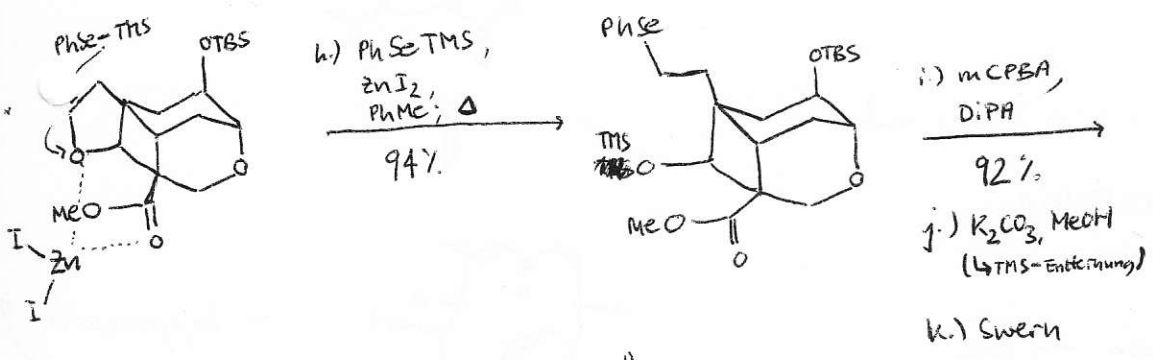 PhSe-TMS
OTBS
O
O
MeO
O
I
Zn
I
h.) PhSeTMS,
ZnI₂,
PhMe; Δ
94%
PhSe
OTBS
TMS
O
O
MeO
O
i.) mCPBA,
DiPA
92%
j.) K₂CO₃, MeOH
(↳TMS-Entfernung)
k.) Swern